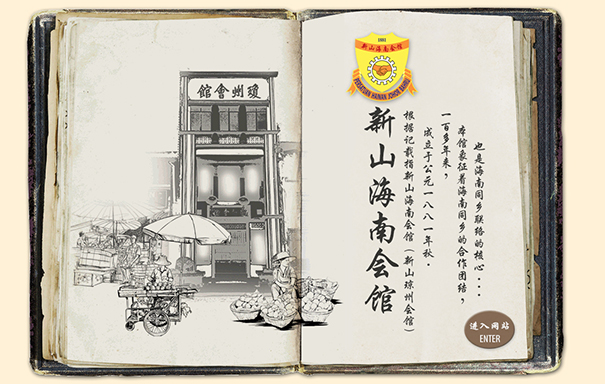 瓊州會館
1881
新山海南会馆
PERSATUAN HAINAN JOHOR BAHRU
新山海南会馆
根据记载指新山海南会馆（新山琼州会馆）
成立于公元一八八一年秋．
一百多年来，
本馆象征着海南同乡的合作团结，
也是海南同乡联络的核心...
进入网站
ENTER